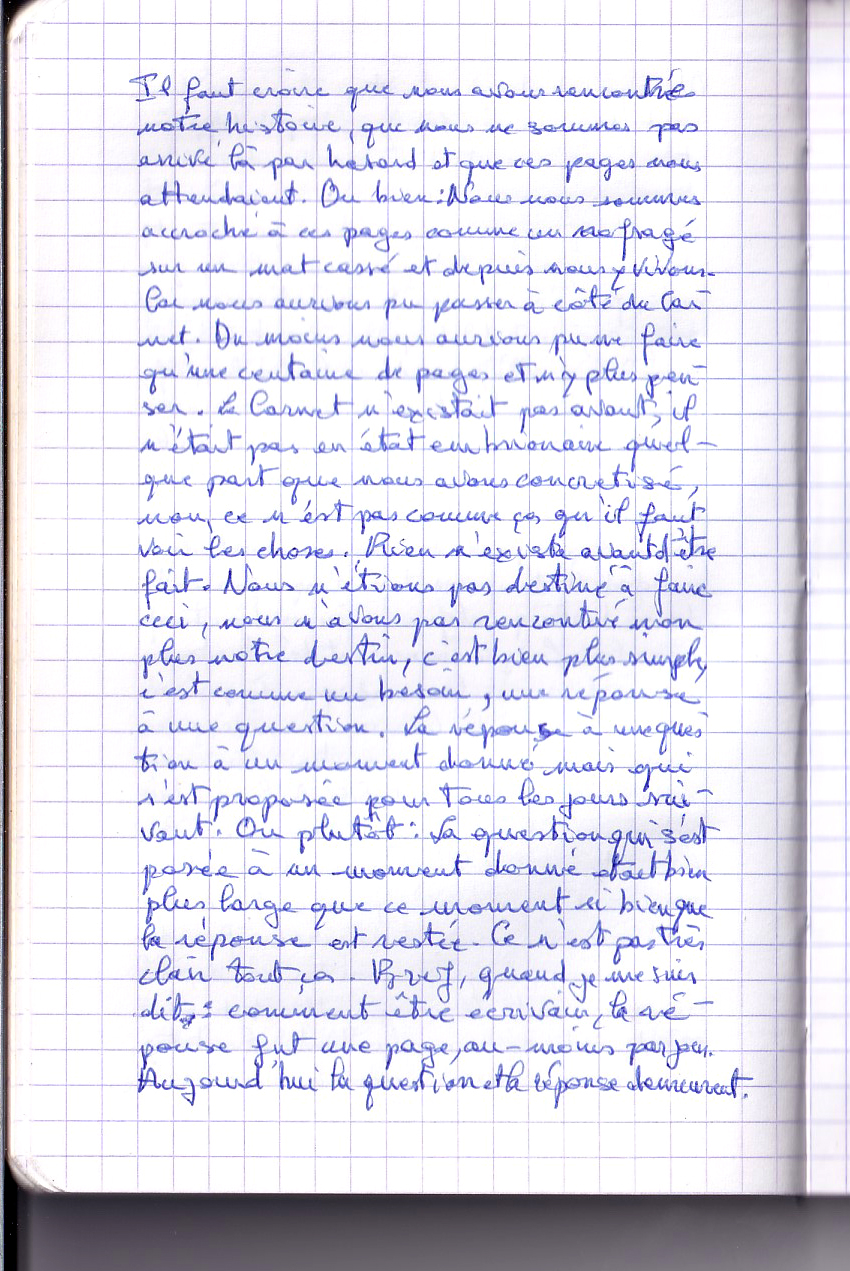 Il faut croire que nous avons rencontré
notre histoire, que nous ne sommes pas
arrivé là par hasard et que ces pages nous
attendaient. Ou bien : Nous nous sommes
accroché à ces pages comme un naufragé
sur un mat cassé et depuis nous y vivons.
Car nous aurions pu passer à côté du Car-
net. Du moins nous aurions pu ne faire
qu'une centaine de pages et n'y plus pen-
ser. Le Carnet n'existait pas avant, il
n'était pas en état embrionaire quel-
que part que nous avons concretisé,
non, ce n'est pas comme ça qu'il faut
voir les choses. Rien n'existe avant d'être
fait. Nous n'étions pas destiné à faire
ceci, nous n'avons pas rencontré non
plus notre destin, c'est bien plus simple,
c'est comme un besoin, une réponse
à une question. La réponse à une ques
tion à un moment donné mais qui
s'est proposée pour tous les jours sui-
vant. Ou plutôt : La question qui s'est
posée à un moment donné était bien
plus large que ce moment si bien que
la réponse est restée. Ce n'est pas très
clair tout ça. Bref, quand je me suis
dit : comment être écrivain, la ré-
ponse fut une page, au-moins par jour.
Aujourd'hui la question et la réponse demeurent.